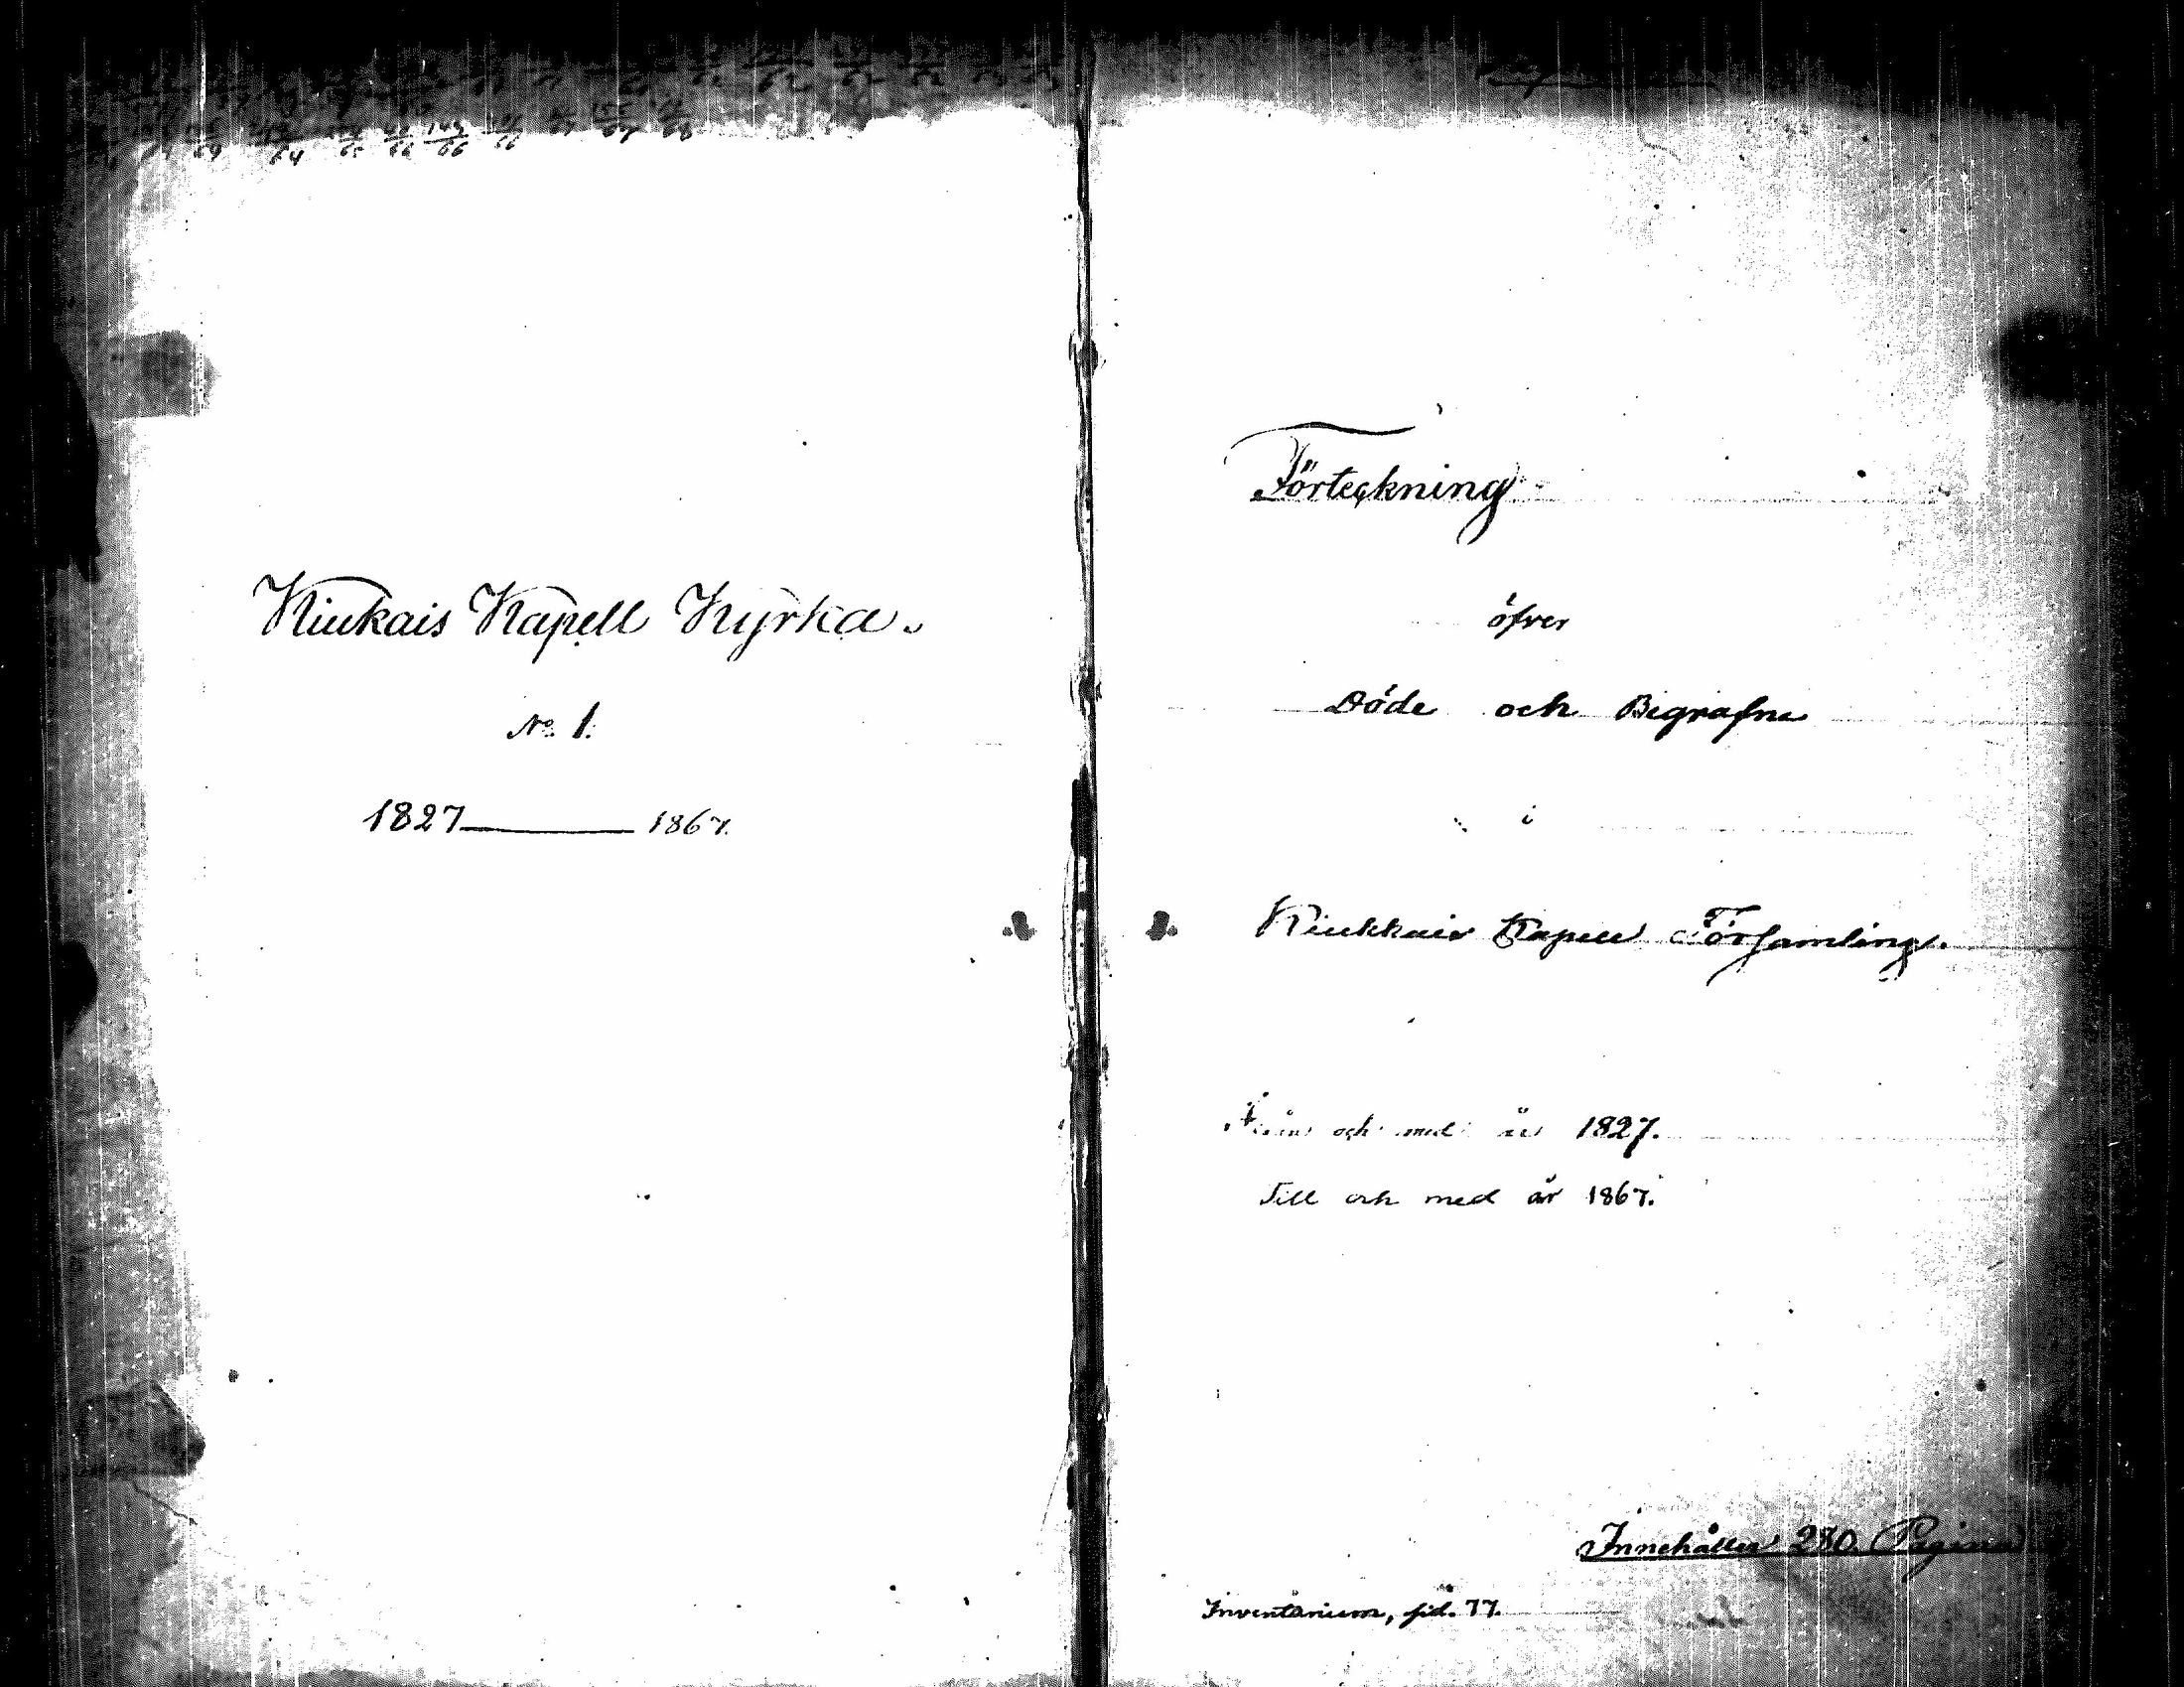 Kiukais Kapell Kyrka.
No 1.
1827 — 1867.
Förteckning
öfver
Döde och Begrafne
i
Kiukkais Kapell Församling.
Från och med år 1827.
Till och med år 1867.
Innehåller 280 Pagina
Inventarium, sid. 77.